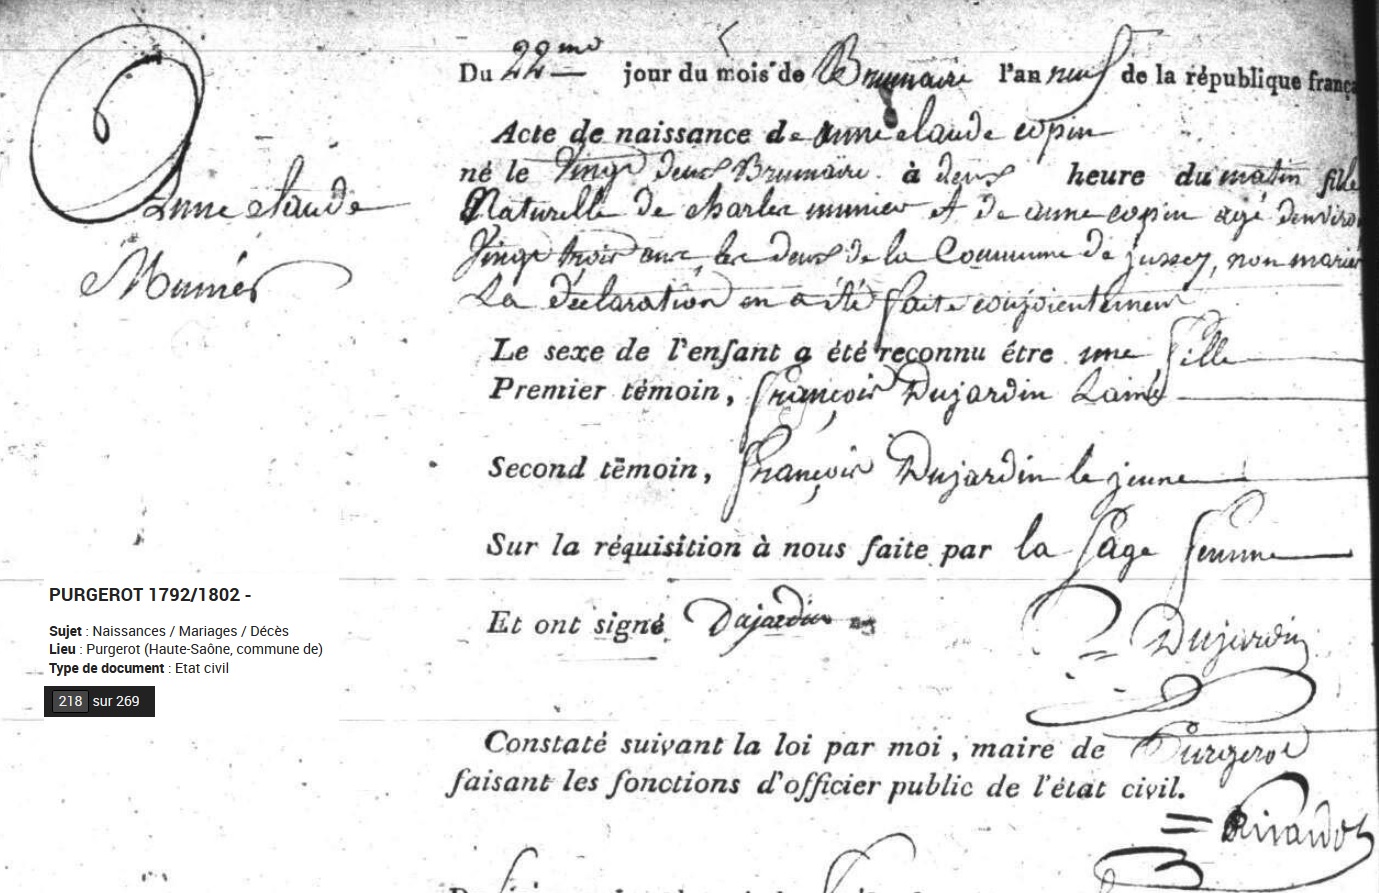 Du 22me jour du mois de Brumaire l'an neuf de la république frança
Acte de naissance de anne claude copin
né le Vingt deux Brumaire à deux heure du matin fille
Naturelle de charles munier et de anne copin agé denviron
Vingt trois ans, les deux de la Commune de jussey, non mariés
La déclaration en a été faite conjointement
Anne claude
Muniér
Le sexe de l'enfant a été reconnu être une fille
Premier témoin, françois Dujardin Lainé
Second témoin, françois Dujardin le jeune
Sur la réquisition à nous faite par la sage femme
Et ont signé Dujardin
Dujardin
Constaté suivant la loi par moi, maire de Purgerot
faisant les fonctions d'officier public de l'état civil.
Rivardot
PURGEROT 1792/1802 -
Sujet : Naissances / Mariages / Décès
Lieu : Purgerot (Haute-Saône, commune de)
Type de document : Etat civil
218 sur 269